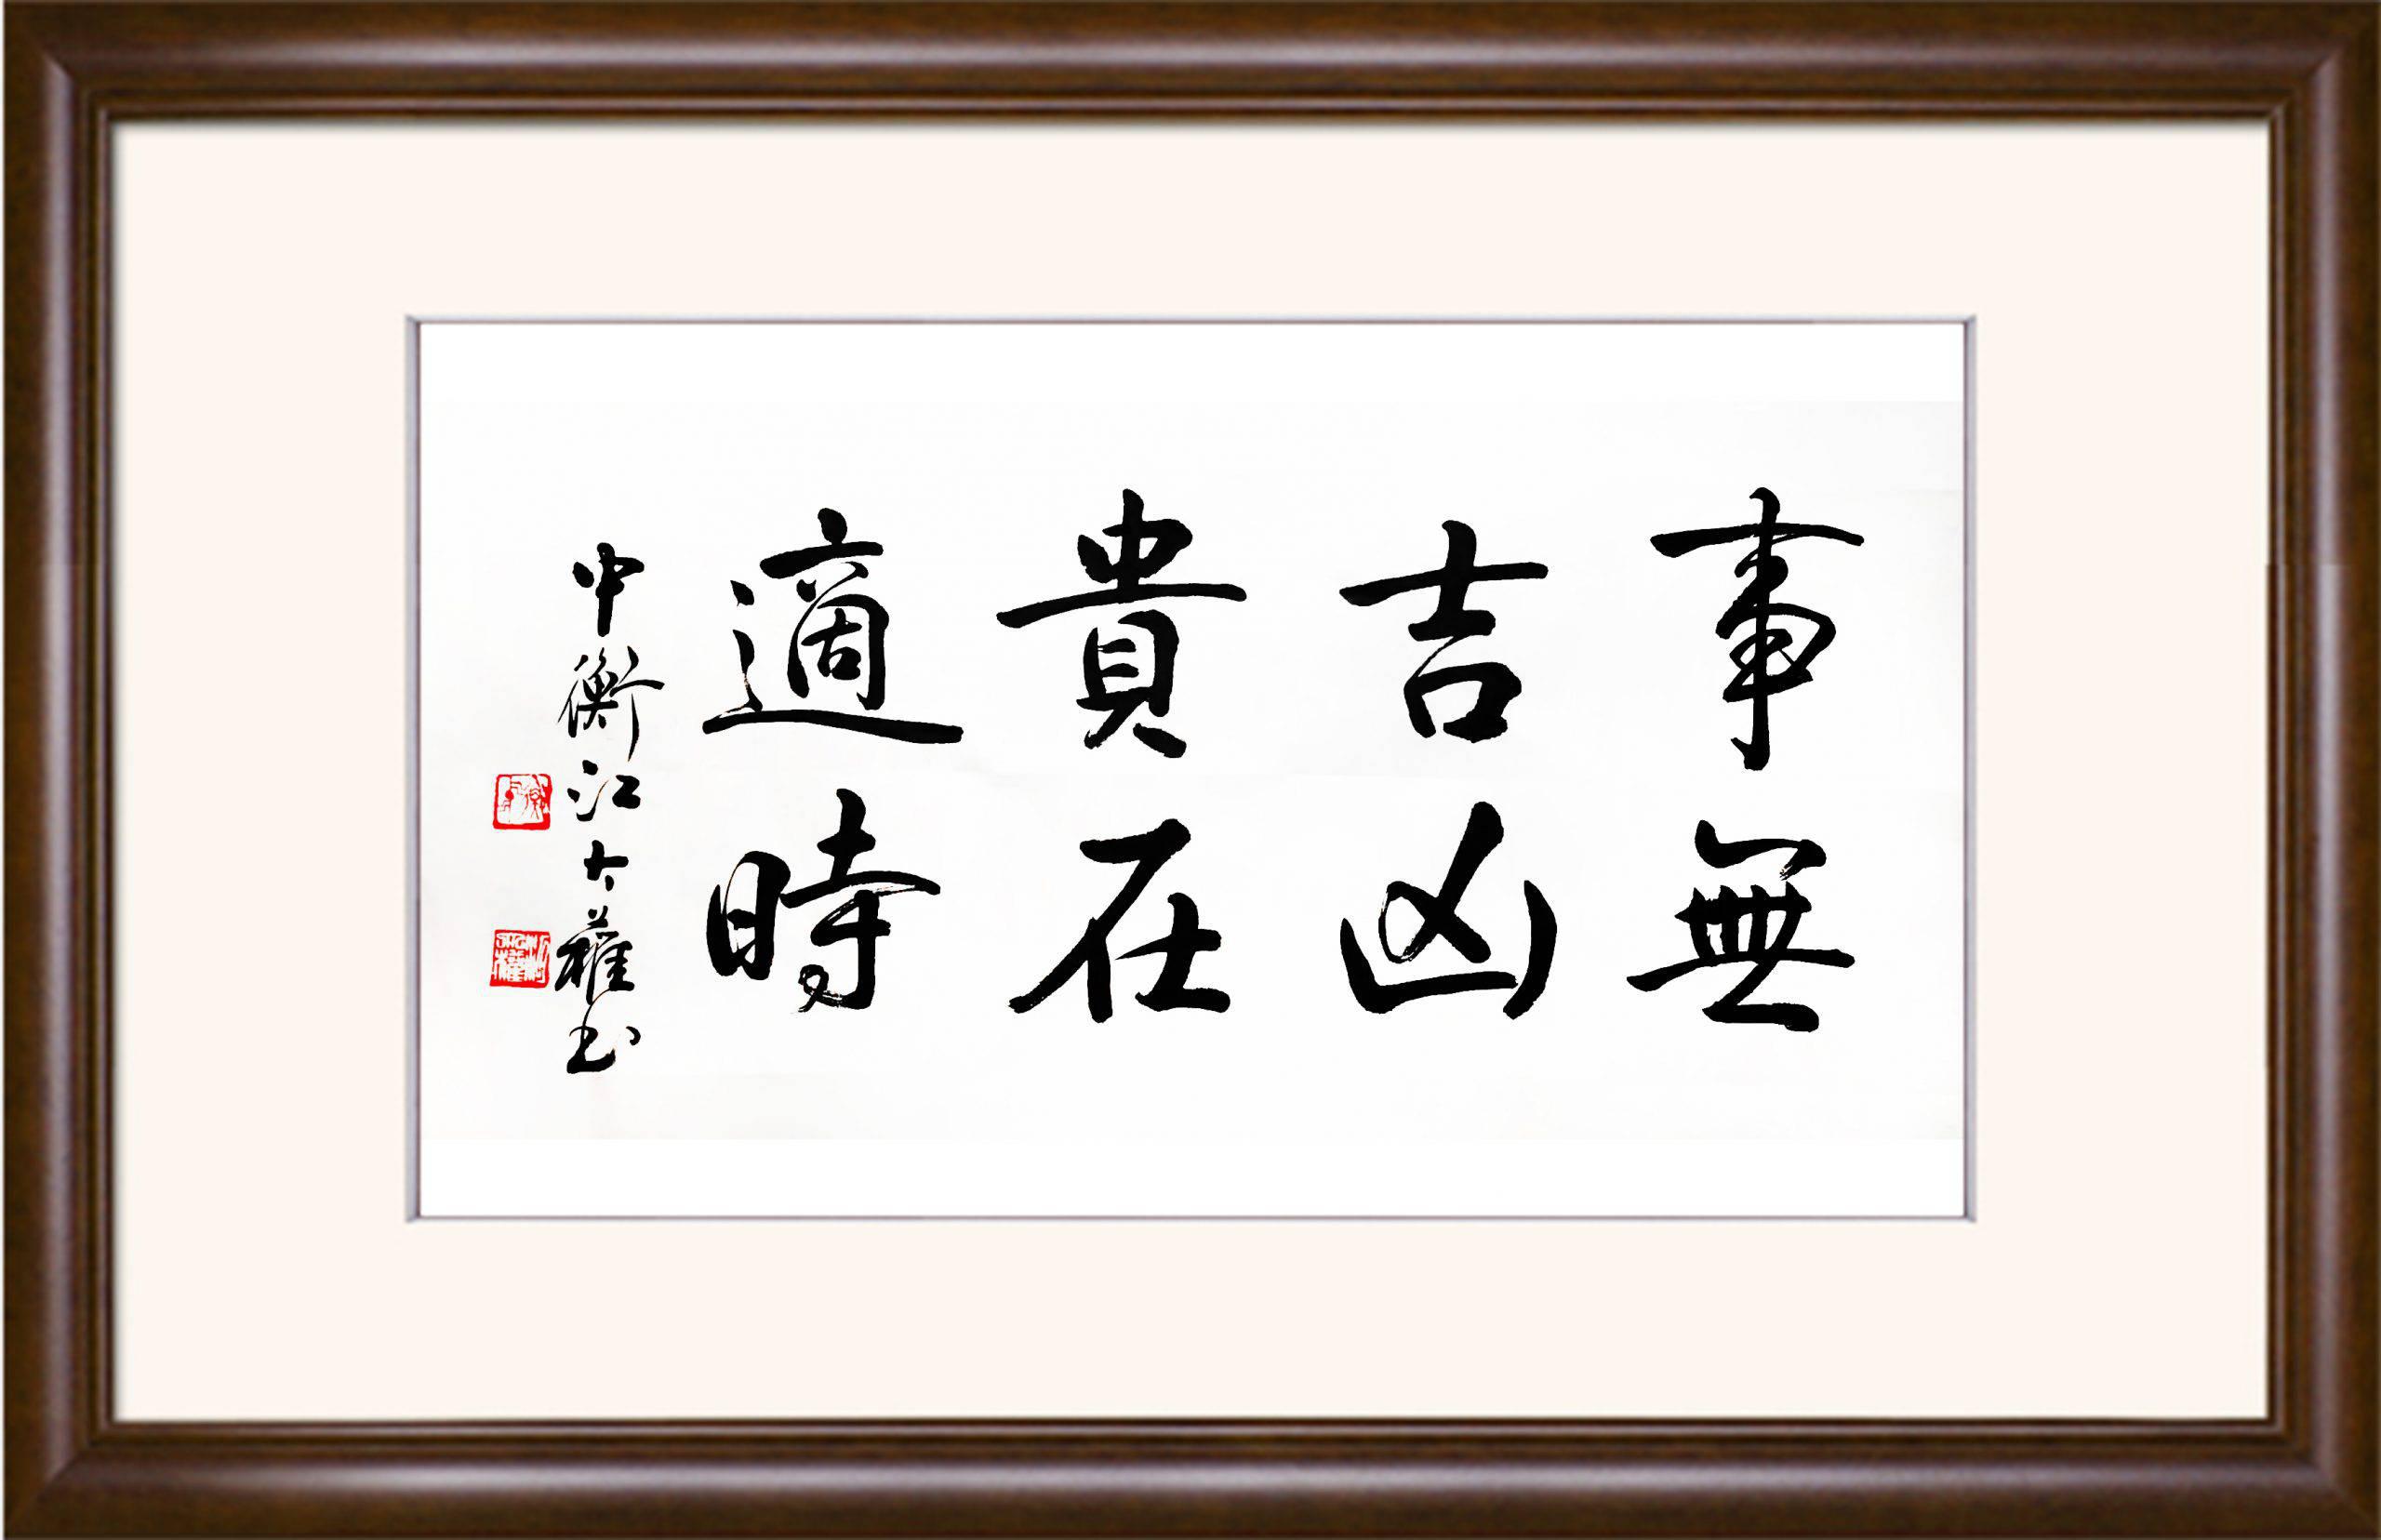 事無
吉凶
貴在
適時
中衡江大權书